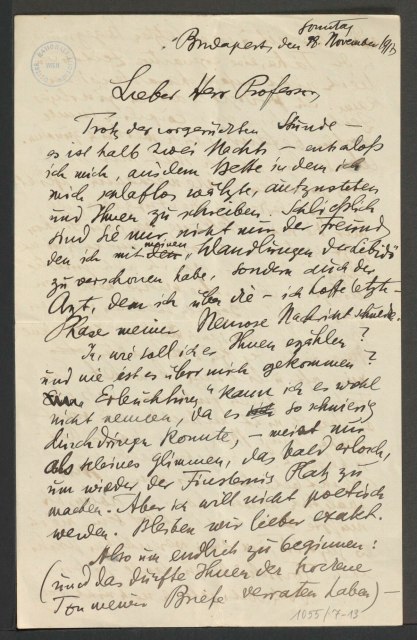 Sonntag
Budapest, den 18. November 1917
Lieber Herr Professor,
Trotz der vorgerückten Stunde –
es ist halb zwei Nachts – entschloß
ich mich, aus dem Bette in dem ich
mich schlaflos wälzte, aufzustehen
und Ihnen zu schreiben. Schließlich
sind Sie mir nicht nur der Freund
den ich mit meinen „Wandlungen der Libido"
zu verschonen habe, sondern auch der
Arzt, dem ich über die – ich hoffe letzte –
Phase meiner Neurose Nachricht schulde.
Ja, wie soll ich es Ihnen erzählen?
und wie ist es über mich gekommen?
„Erleuchtung" kann ich es wohl
nicht nennen, da es so schwierig
durchdringen konnte, – meist nur
als kleines Glimmen, das bald erlosch,
um wieder der Finsternis Platz zu
machen. Aber ich will nicht poetisch
werden. Bleiben wir lieber exakt.
Also um endlich zu beginnen:
(und das dürfte Ihnen der trockene
Ton meiner Briefe verraten haben) –
1055/7-13